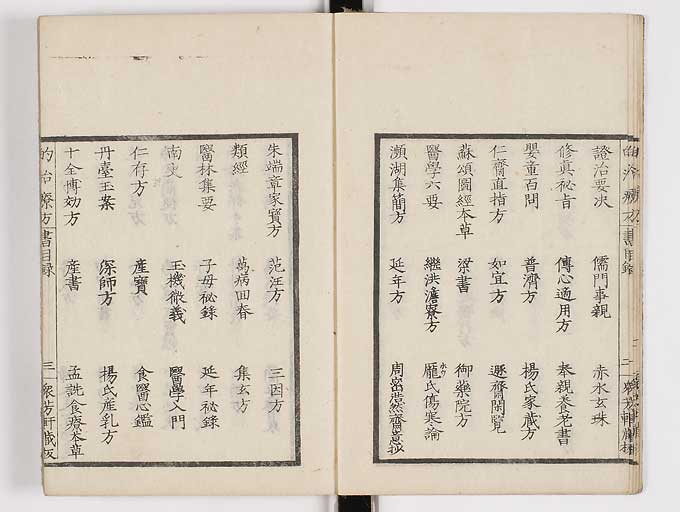 證治要决 儒門事親 赤水玄珠
修真祕旨 傳心適用方 奉親養老書
嬰童百問 普濟方 楊氏家蔵方
仁齋直指方 如宜方 遯齋閑覽
蘇頌圖經本草 梁書 御藥院方
醫學六要 繼洪澹寮方 龐氏傷寒論
瀕湖集簡方 延年方 周密志雅堂
朱端章家寶方 范汪方 三因方
類經 萬病回春 集玄方
醫林集要 子母祕録 延年祕録
南史 玉機微義 醫學入門
仁存方 產寶 食醫心鑑
丹臺玉案 深師方 楊氏産乳方
十全博効方 産書 孟詵食療本草
的治療方 書目録 三 衆芳軒蔵板